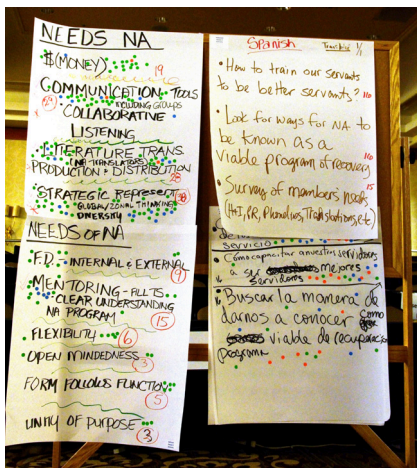 NEEDS NA
$(MONEY)
19
COMMUNICATION TOOLS
INCLUDING GROUPS
COLLABORATIVE
LISTENING
LITERATURE TRANS
(NA TRANSLATORS)
PRODUCTION & DISTRIBUTION
28
STRATEGIC Represent
GLOBAL/ZONAL THINKING
DIVERSITY
NEEDS OF NA
F.D. - INTERNAL & EXTERNAL
9
MENTORING - FILLTS
CLEAR UNDERSTANDING
NA PROGRAM
15
FLEXIBILITY
6
OPEN MINDEDNESS
3
FORM FOLLOWS FUNCTION
5
UNITY OF PURPOSE
3
Spanish
• How to train our servants
to be better servants? 110
• Look for ways for NA to
be known as a
viable program of recovery
16
• Survey of members needs
15
(H+I, PR, Phonelines, Translations, etc)
servicio
• Como capacitar a nuestros servidores
a ser mejores
servidores
• Buscar la manera de
darnos a conocer como
viable de recuperacion
programa